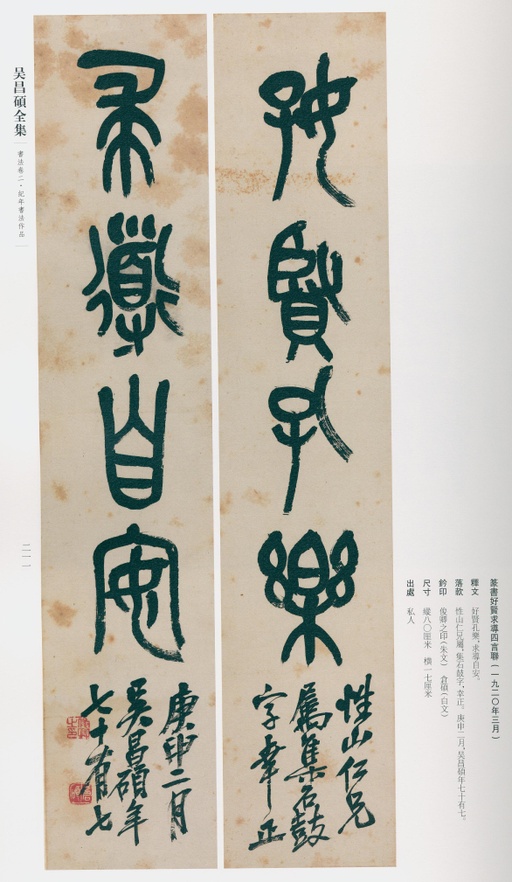 好賢孔樂
性山仁兄
屬集石鼓
字幸正
求導自安
庚申二月
吳昌碩年
七十有七
篆書好賢求導四言聯（一九二〇年三月）
釋文 好賢孔樂，求導自安。
落款 性山仁兄屬，集石鼓字，幸正。庚申二月，吳昌碩年七十有七。
鈐印 俊卿之印（朱文） 倉碩（白文）
尺寸 縱八〇厘米 橫一七厘米
出處 私人
吴昌碩全集
書法卷二·紀年書法作品
二一一